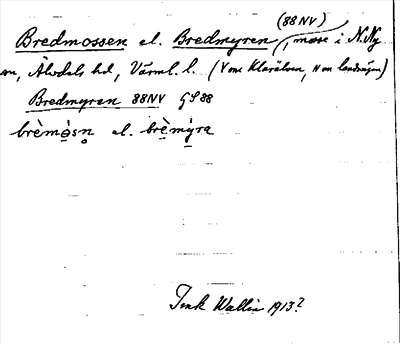 (88 NV)
Bredmossen el. Bredmyren, mosse i N. Ny
sn, Älvdals hd, Värml. l. (V om Klarälven, N om landsvägen)
Bredmyren 88NV GS88
brèmòsn̥ el. brèmỳra
Wallin 1913?